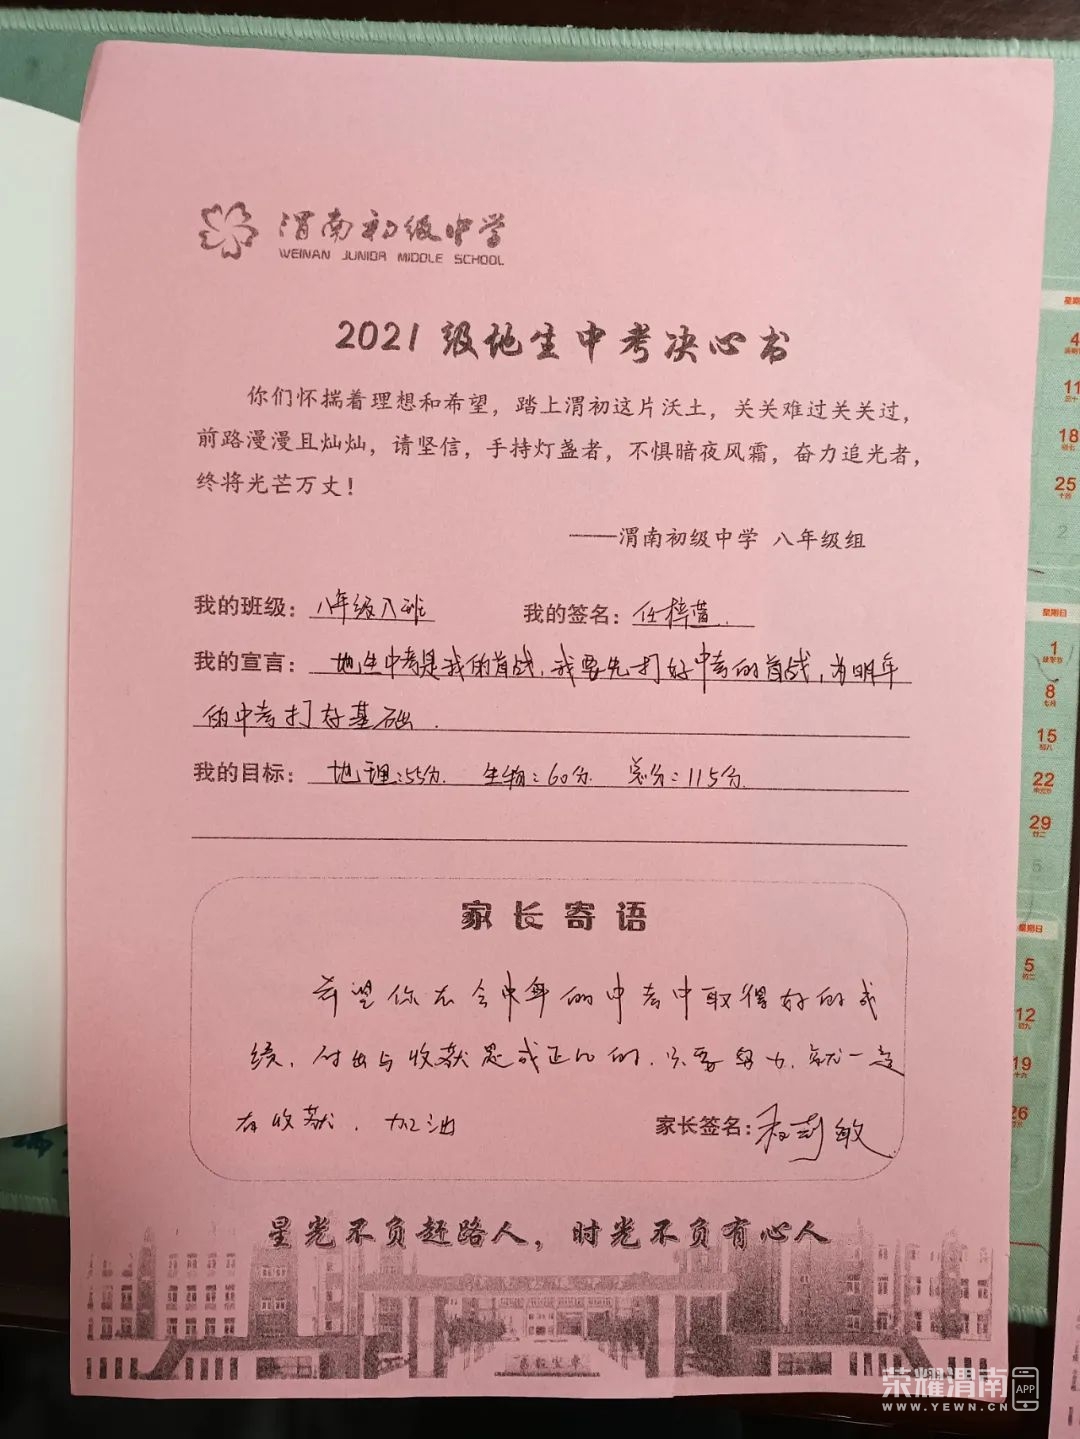 渭南初级中学
WEINAN JUNIOR MIDDLE SCHOOL
2021级地生中考决心书
你们怀揣着理想和希望，踏上渭初这片沃土，关关难过关关过，
前路漫漫且灿灿，请坚信，手持灯盏者，不惧暗夜风霜，奋力追光者，
终将光芒万丈！
——渭南初级中学 八年级组
我的班级：八年级八班 我的签名：任梓萱
我的宣言：地生中考是我的首战，我要先打好中考的首战，为明年
的中考打好基础.
我的目标：地理：55分. 生物：60分. 总分：115分.
家长寄语
希望你在今年的中考中取得好的成
绩，付出与收获是成正比的，只要努力，就一定
有收获，加油
家长签名：
星光不负赶路人，时光不负有心人
荣耀渭南
APP
WWW.YEWN.CN
星期
4
11
18
25
2
星期日
1
8
15
22
29
5
星期日
5
12
19
26